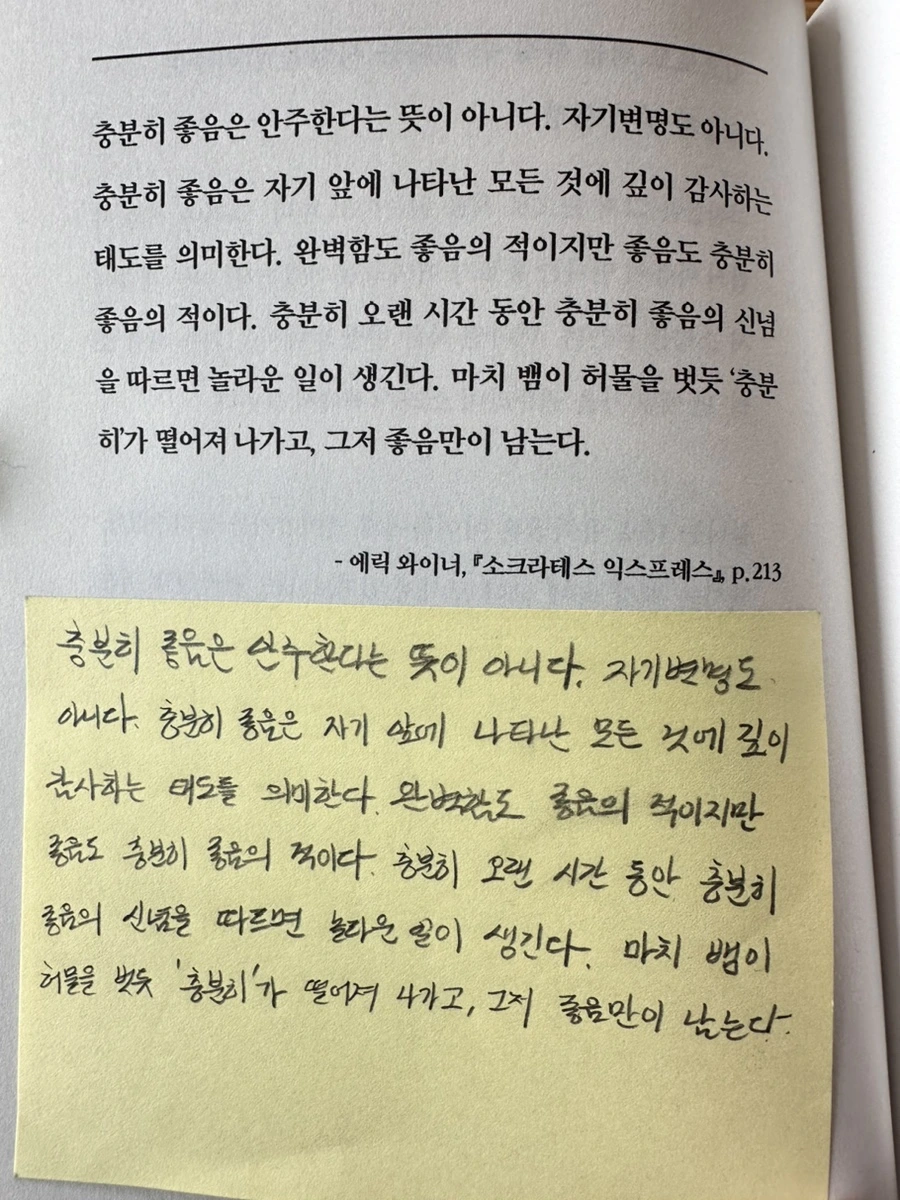 충분히 좋음은 안주한다는 뜻이 아니다. 자기변명도 아니다.
충분히 좋음은 자기 앞에 나타난 모든 것에 깊이 감사하는
태도를 의미한다. 완벽함도 좋음의 적이지만 좋음도 충분히
좋음의 적이다. 충분히 오랜 시간 동안 충분히 좋음의 신념
을 따르면 놀라운 일이 생긴다. 마치 뱀이 허물을 벗듯 ‘충분
히’가 떨어져 나가고, 그저 좋음만이 남는다.
- 에릭 와이너, 『소크라테스 익스프레스』, p.213
충분히 좋음은 안주한다는 뜻이 아니다. 자기변명도
아니다. 충분히 좋음은 자기 앞에 나타난 모든 것에 깊이
감사하는 태도를 의미한다. 완벽함도 좋음의 적이지만
좋음도 충분히 좋음의 적이다. 충분히 오랜 시간 동안 충분히
좋음의 신념을 따르면 놀라운 일이 생긴다. 마치 뱀이
허물을 벗듯 '충분히'가 떨어져 나가고, 그저 좋음만이 남는다.